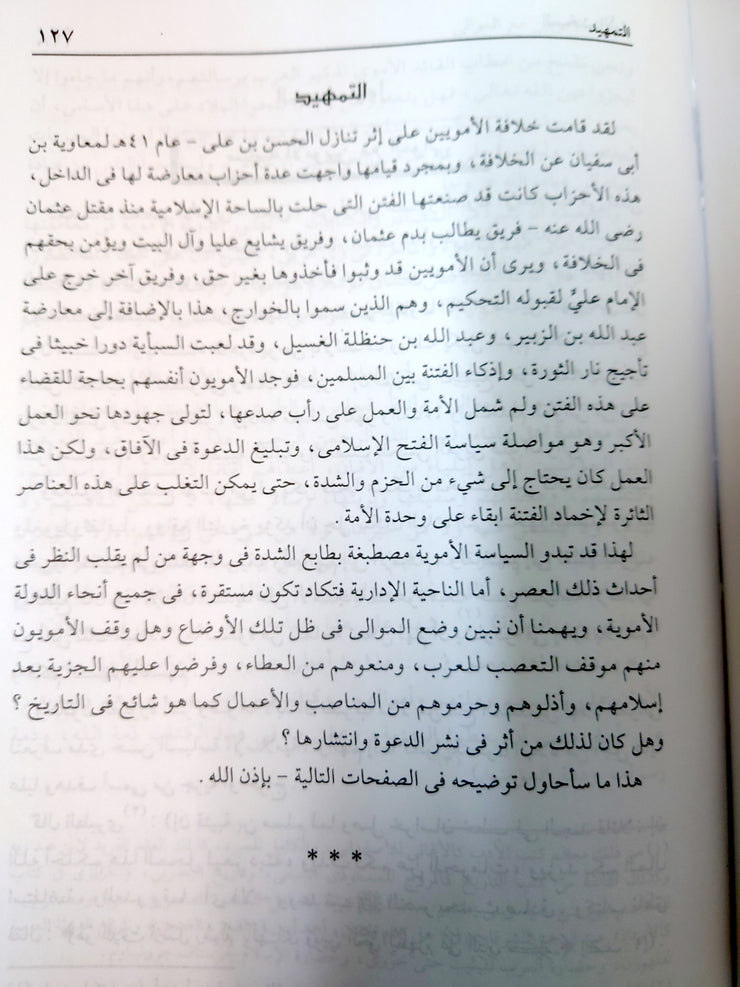 التمهيد ١٢٧
التمهيد
لقد قامت خلافة الأمويين على إثر تنازل الحسن بن على - عام ٤١هـ لمعاوية بن
أبى سفيان عن الخلافة، وبمجرد قيامها واجهت عدة أحزاب معارضة لها فى الداخل،
هذه الأحزاب كانت قد صنعتها الفتن التى حلت بالساحة الإسلامية منذ مقتل عثمان
رضى الله عنه - فريق يطالب بدم عثمان، وفريق يشايع عليا وآل البيت ويؤمن بحقهم
فى الخلافة، ويرى أن الأمويين قد وثبوا فأخذوها بغير حق، وفريق آخر خرج على
الإمام علىٍّ لقبوله التحكيم، وهم الذين سموا بالخوارج، هذا بالإضافة إلى معارضة
عبد الله بن الزبير، وعبد الله بن حنظلة الغسيل، وقد لعبت السبأية دورا خبيثا فى
تأجيج نار الثورة، وإذكاء الفتنة بين المسلمين، فوجد الأمويون أنفسهم بحاجة للقضاء
على هذه الفتن ولم شمل الأمة والعمل على رأب صدعها، لتولى جهودها نحو العمل
الأكبر وهو مواصلة سياسة الفتح الإسلامى، وتبليغ الدعوة فى الآفاق، ولكن هذا
العمل كان يحتاج إلى شيء من الحزم والشدة، حتى يمكن التغلب على هذه العناصر
الثائرة لإخماد الفتنة ابقاء على وحدة الأمة.
لهذا قد تبدو السياسة الأموية مصطبغة بطابع الشدة فى وجهة من لم يقلب النظر فى
أحداث ذلك العصر، أما الناحية الإدارية فتكاد تكون مستقرة، فى جميع أنحاء الدولة
الأموية، ويهمنا أن نبين وضع الموالى فى ظل تلك الأوضاع وهل وقف الأمويون
منهم موقف التعصب للعرب، ومنعوهم من العطاء، وفرضوا عليهم الجزية بعد
إسلامهم، وأذلوهم وحرموهم من المناصب والأعمال كما هو شائع فى التاريخ؟
وهل كان لذلك من أثر فى نشر الدعوة وانتشارها؟
هذا ما سأحاول توضيحه فى الصفحات التالية - بإذن الله.
* * *